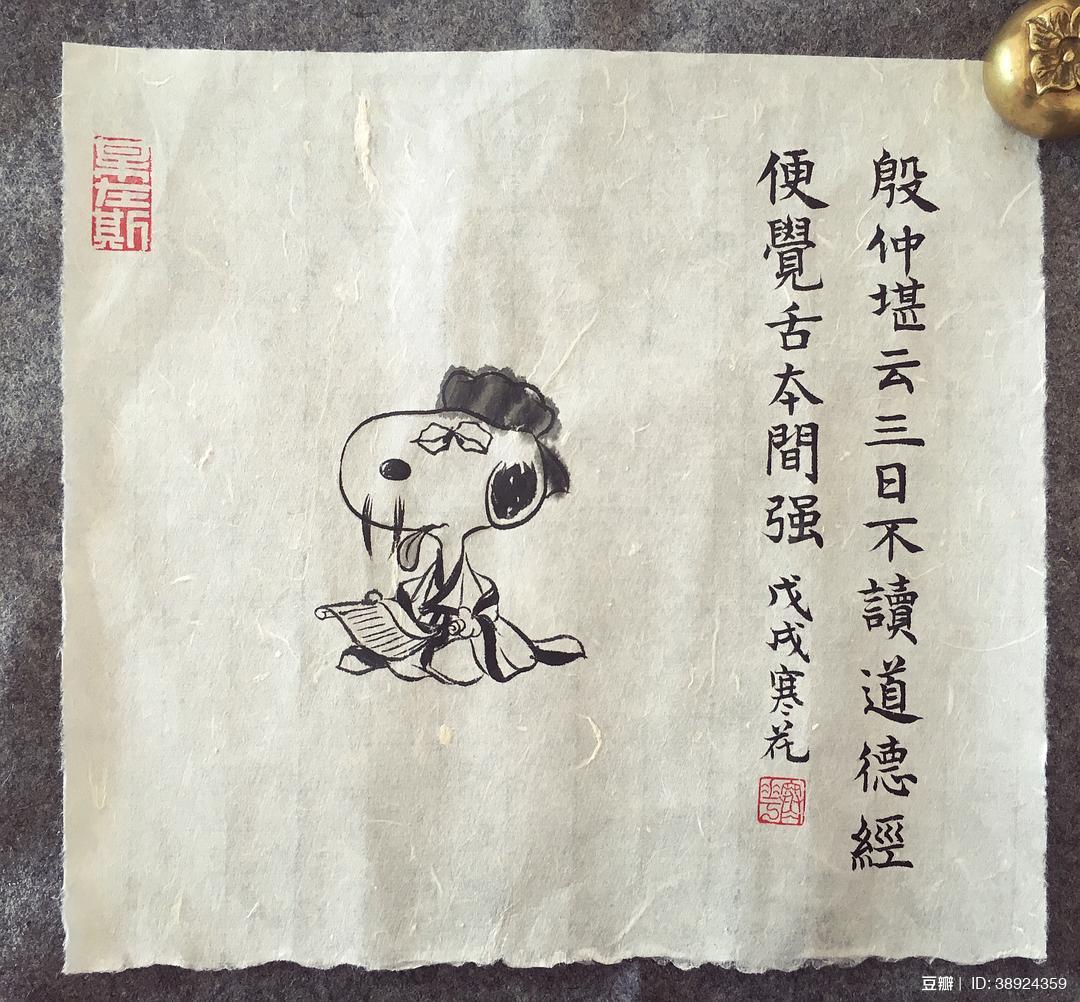 殷仲堪云三日不讀道德經
便覺舌本間强
戊戌寒花
豆瓣 | ID: 38924359